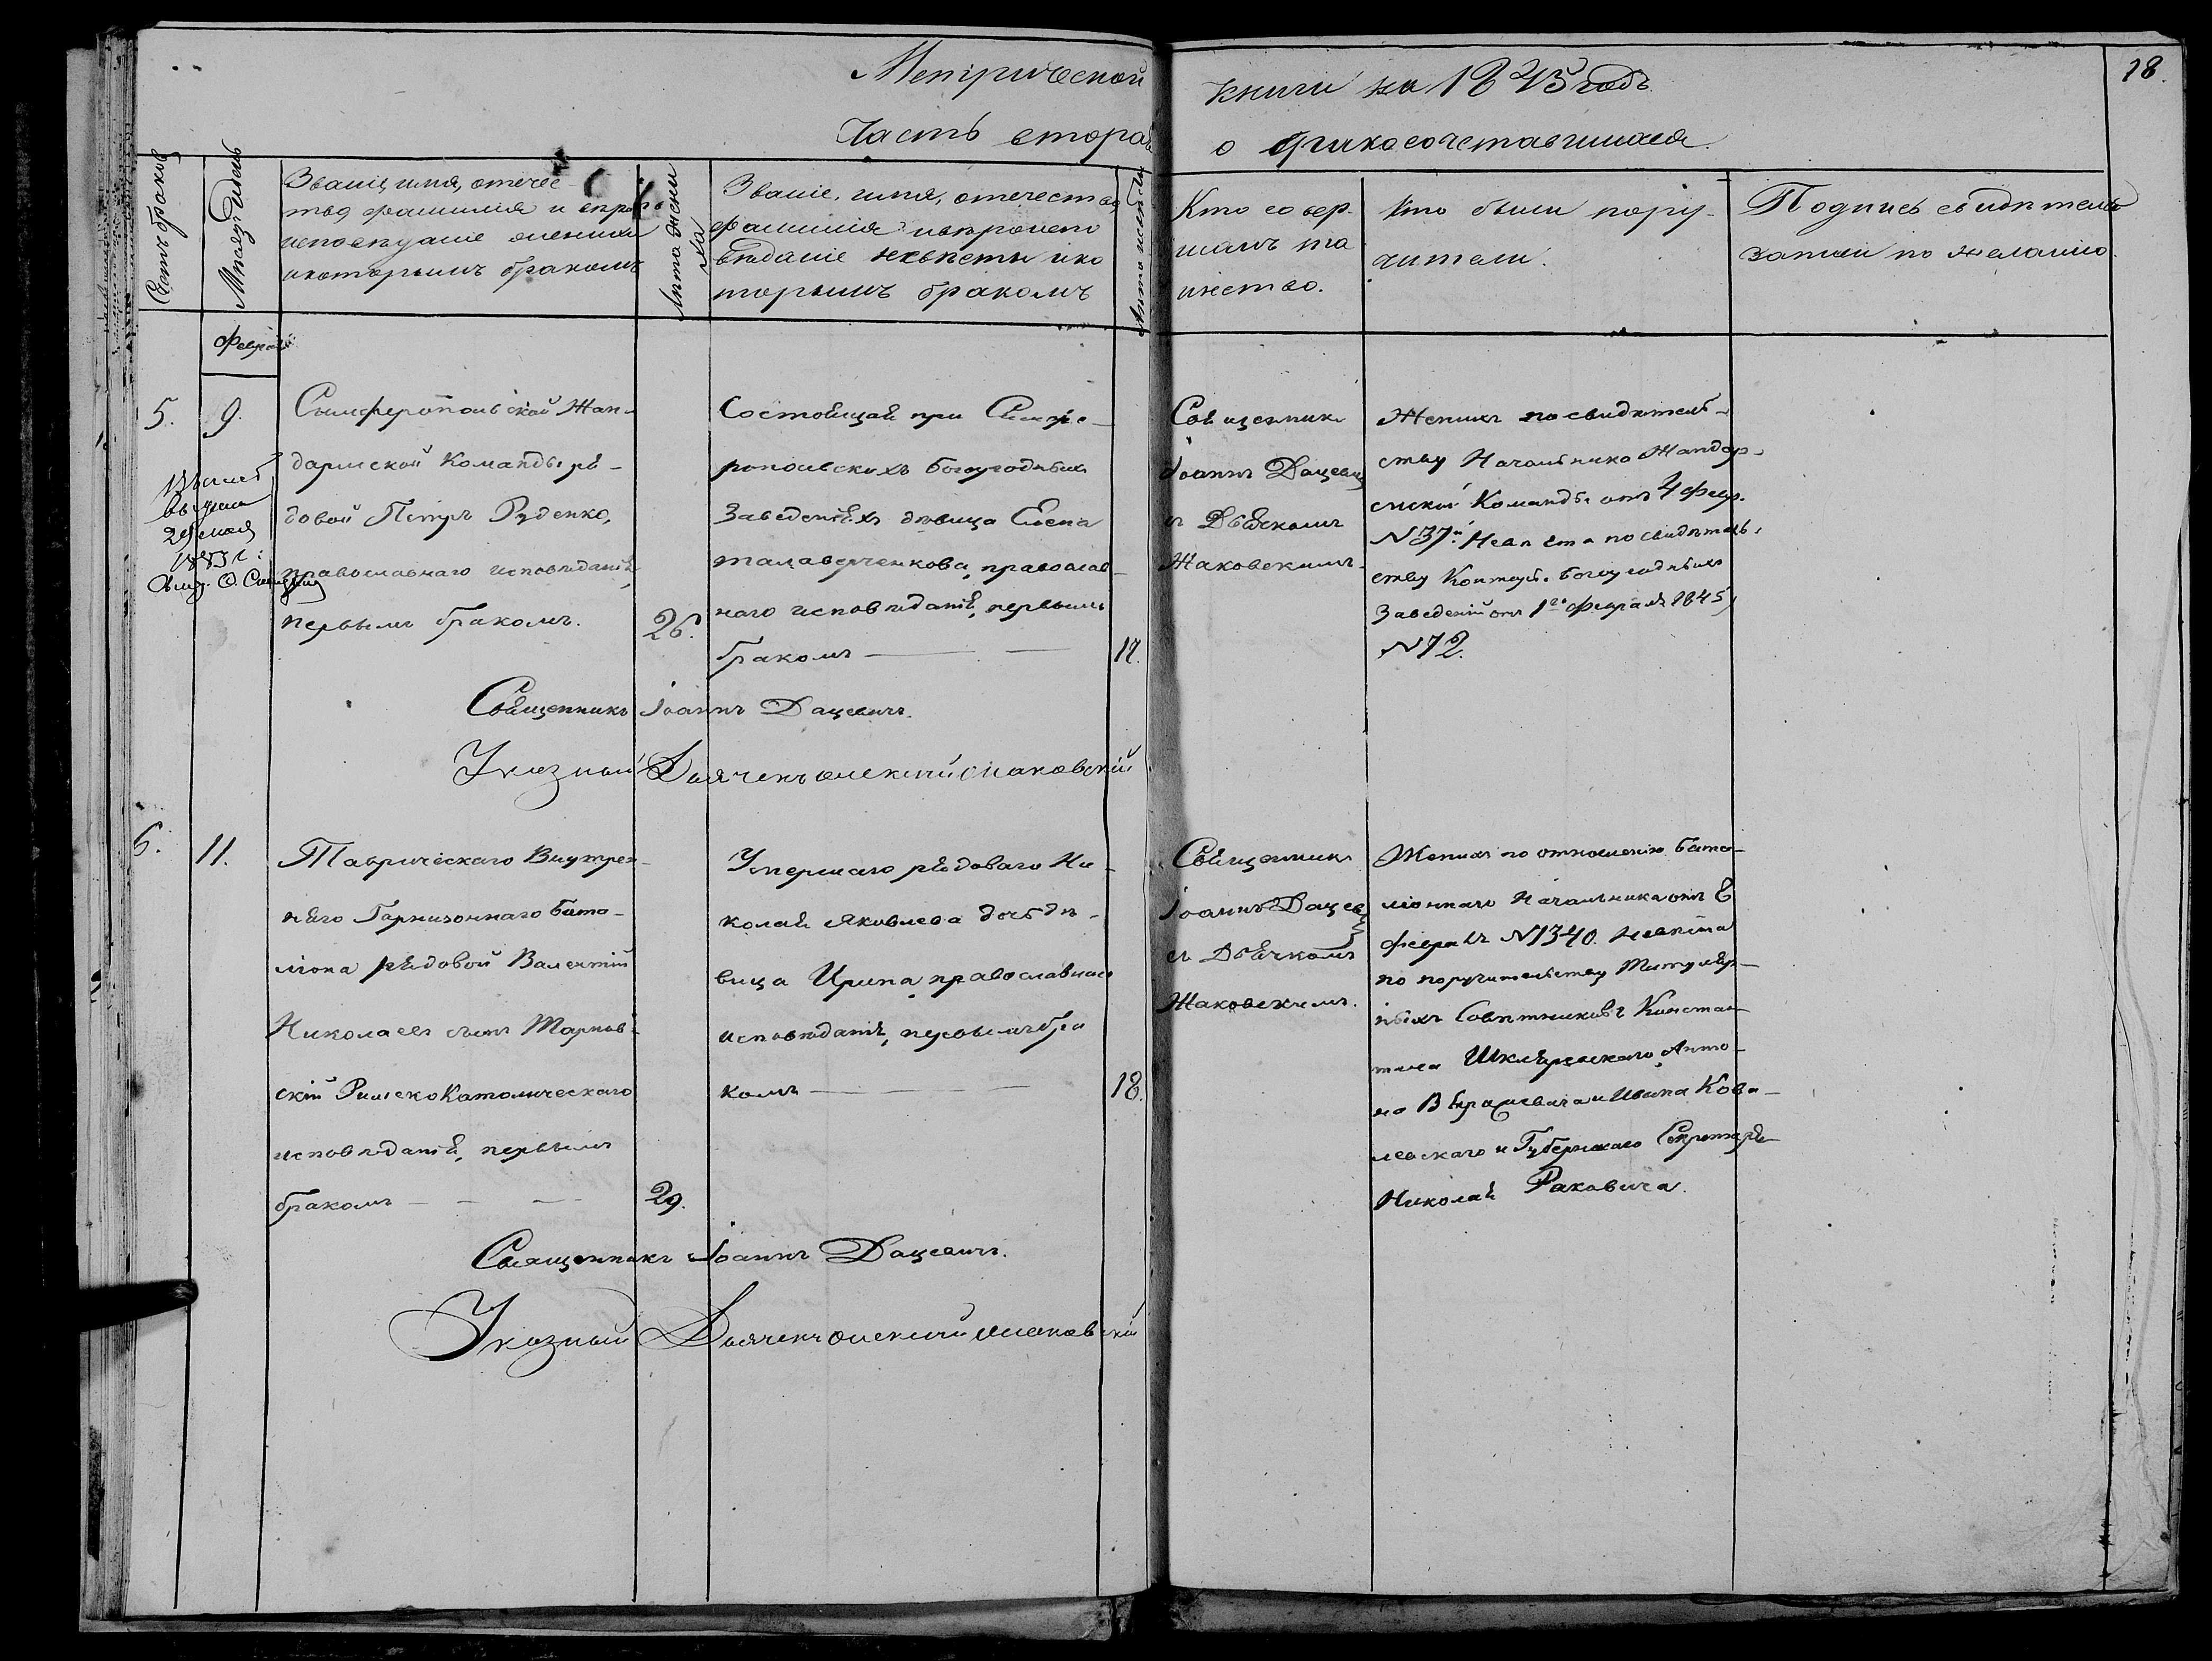 Метрической книги на 1845 годъ
18.
Часть вторая о бракосочетавшихся.
Счетъ браковъ
Мѣсяцъ и день
Званіе, имя, отечес-
тво, фамилія и
исповѣданіе жениха
и которымъ бракомъ
Лѣта жени
ха
Званіе, имя, отечество,
фамилія и вѣроиспо
вѣданіе невѣсты и ко
торымъ бракомъ
Лѣта невѣсты
Кто совер-
шалъ та
инство.
Кто были пору-
чители.
Подпись свидѣтелей
записи по желанію.
Февраль
5.
9.
29 мая
Симферопольской Жан-
дармской Команды ря-
довой Петръ Руденко,
православнаго исповѣданія
первымъ бракомъ.
26.
Состоящая при Симфе-
ропольскихъ Богоугодныхъ
Заведеніяхъ дѣвица Елена
православ-
наго исповѣданія, первымъ
бракомъ
17.
Священникъ
Іоаннъ Дацевичъ
съ Дьячкомъ
Жаковскимъ.
Женихъ по свидѣтель-
ству Начальника Жандар-
мской Команды отъ 4 февр.
N 37й. Невѣста по свидѣтель-
ству Конторы Богоугодныхъ
Заведеній отъ 1го февраля 1845
N 72.
Священникъ Іоаннъ Дацевичъ.
Указный Дьячекъ Алексій Жаковскій
6.
11.
Таврическаго Внутрен-
няго Гарнизоннаго Бата-
ліона рядовой Валентій
Николаевъ сынъ Тарнов-
скій Римско Католическаго
исповѣданія, первымъ
бракомъ
29.
Умершаго рядоваго Ни-
колая Яковлева дочь дѣ-
вица Ирина, православнаго
исповѣданія, первымъ бра
комъ
18.
Священникъ
Іоаннъ Дацевичъ
съ Дьячкомъ
Жаковскимъ.
Женихъ по отношенію Бата-
ліоннаго Начальника отъ 8
февраля N 1340. Невѣста
по поручительству Титуляр-
ныхъ Совѣтниковъ Констан-
тина Шкляревскаго, Анто-
на и Ивана Кова-
левскаго и Губернскаго Секретаря
Николая Раковича.
Священникъ Іоаннъ Дацевичъ.
Указный Дьячекъ Алексій Жаковскій